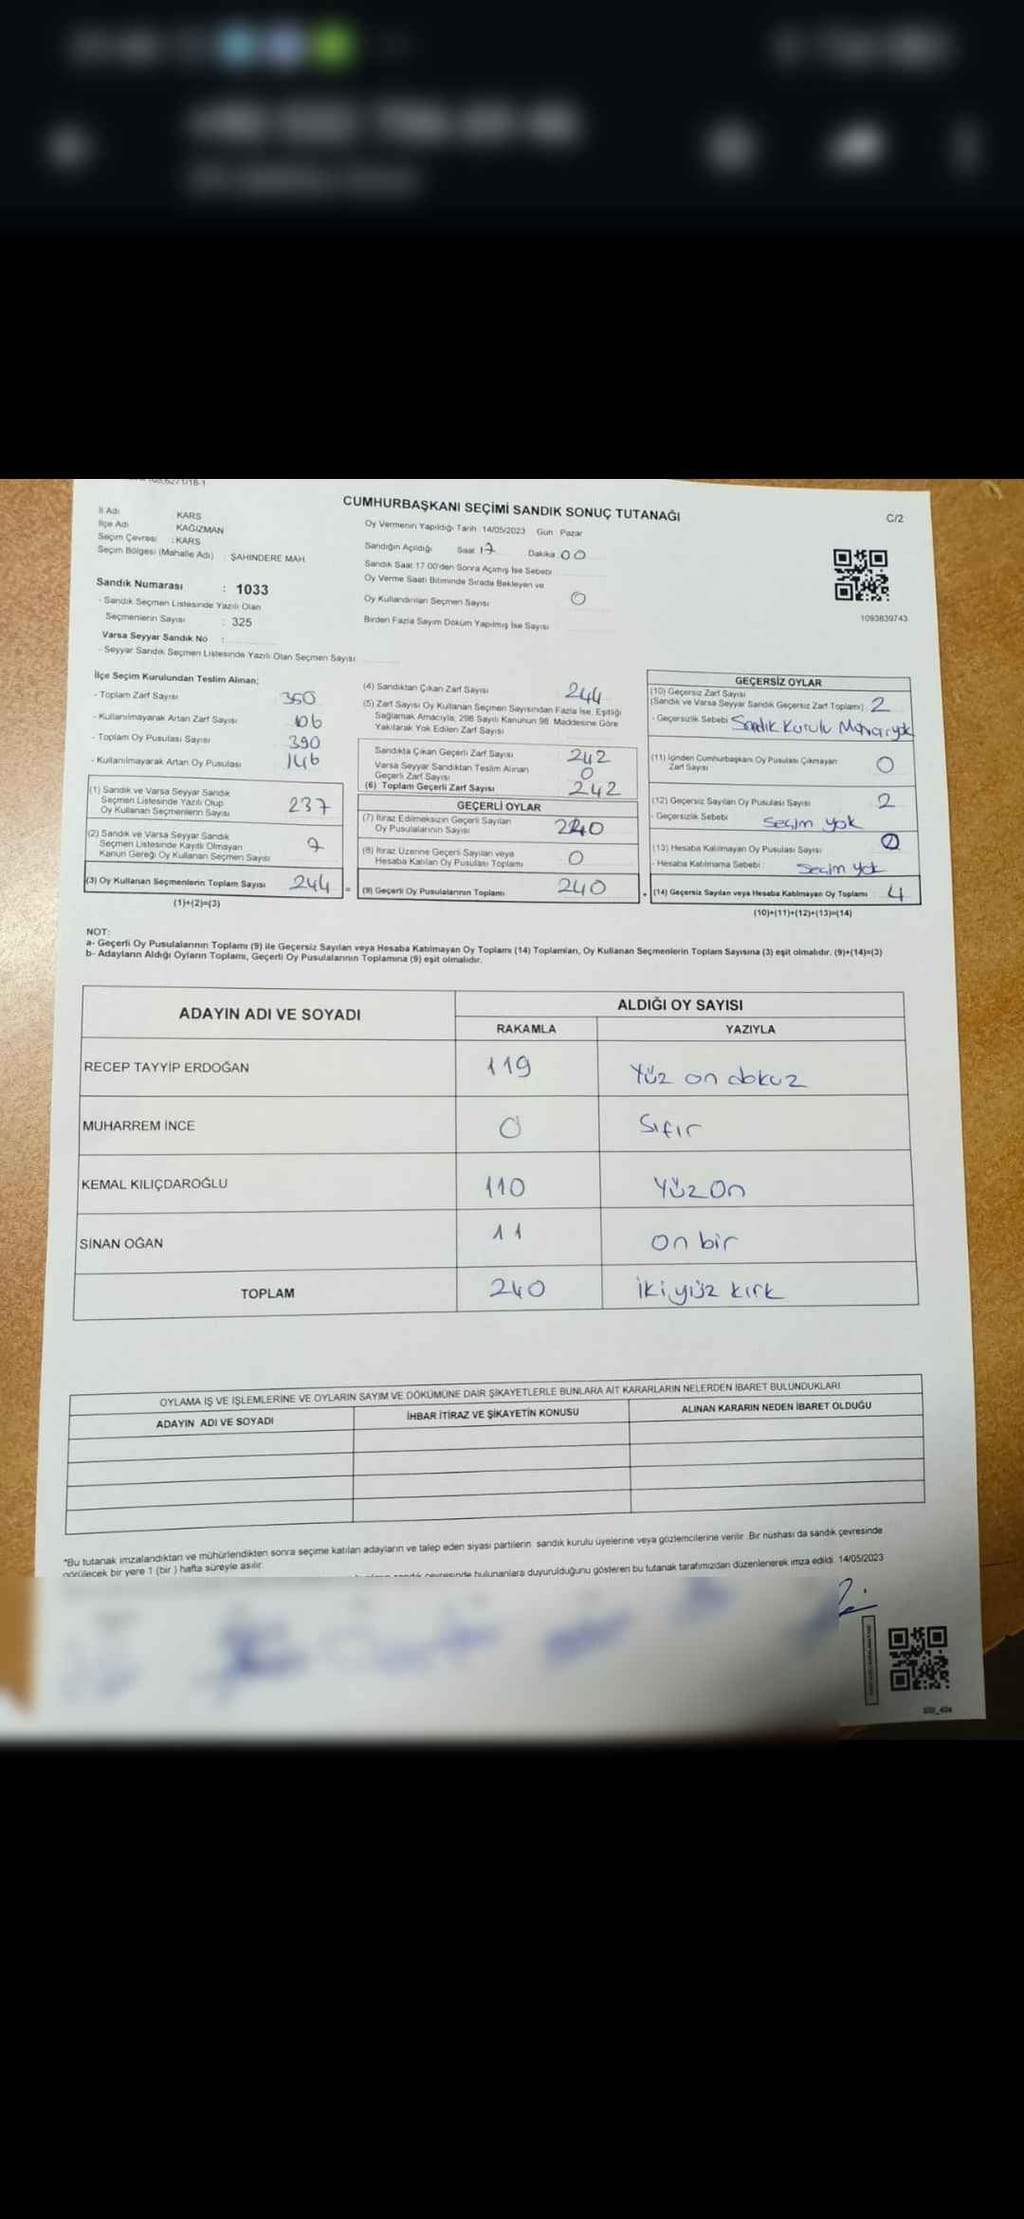 CUMHURBAŞKANI SEÇİMİ SANDIK SONUÇ TUTANAĞI
C/2
İl Adı KARS
İlçe Adı KAĞIZMAN
Seçim Çevresi : KARS
Seçim Bölgesi (Mahalle Adı) : ŞAHİNDERE MAH
Sandık Numarası : 1033
- Sandık Seçmen Listesinde Yazılı Olan
Seçmenlerin Sayısı : 325
Varsa Seyyar Sandık No :
- Seyyar Sandık Seçmen Listesinde Yazılı Olan Seçmen Sayısı
Oy Vermenin Yapıldığı Tarih 14/05/2023 Gün : Pazar
Sandığın Açıldığı Saat 17 Dakika 00
Sandık Saat 17:00'den Sonra Açılmış İse Sebebi
Oy Verme Saati Bitiminde Sırada Bekleyen ve
Oy Kullandırılan Seçmen Sayısı 0
Birden Fazla Sayım Döküm Yapılmış İse Sayısı
1093839743
İlçe Seçim Kurulundan Teslim Alınan;
- Toplam Zarf Sayısı 350
- Kullanılmayarak Artan Zarf Sayısı 106
- Toplam Oy Pusulası Sayısı 390
- Kullanılmayarak Artan Oy Pusulası 146
(1) Sandık ve Varsa Seyyar Sandık
Seçmen Listesinde Yazılı Olup
Oy Kullanan Seçmenlerin Sayısı 237
(2) Sandık ve Varsa Seyyar Sandık
Seçmen Listesinde Kayıtlı Olmayan
Kanun Gereği Oy Kullanan Seçmen Sayısı 7
(3) Oy Kullanan Seçmenlerin Toplam Sayısı 244 =
(1)+(2)=(3)
(4) Sandıktan Çıkan Zarf Sayısı 244
(5) Zarf Sayısı Oy Kullanan Seçmen Sayısından Fazla İse, Eşitliği
Sağlamak Amacıyla; 298 Sayılı Kanunun 98. Maddesine Göre
Yakılarak Yok Edilen Zarf Sayısı
Sandıkta Çıkan Geçerli Zarf Sayısı 242
Varsa Seyyar Sandıktan Teslim Alınan
Geçerli Zarf Sayısı 0
(6) Toplam Geçerli Zarf Sayısı 242
GEÇERLİ OYLAR
(7) İtiraz Edilmeksizin Geçerli Sayılan
Oy Pusulalarının Sayısı 240
(8) İtiraz Üzerine Geçerli Sayılan veya
Hesaba Katılan Oy Pusulası Toplamı 0
(9) Geçerli Oy Pusulalarının Toplamı 240 +
GEÇERSİZ OYLAR
(10) Geçersiz Zarf Sayısı
(Sandık ve Varsa Seyyar Sandık Geçersiz Zarf Toplamı) 2
- Geçersizlik Sebebi Sandık Kurulu Mührü yok
(11) İçinden Cumhurbaşkanı Oy Pusulası Çıkmayan
Zarf Sayısı 0
(12) Geçersiz Sayılan Oy Pusulası Sayısı 2
- Geçersizlik Sebebi Seçim yok
(13) Hesaba Katılmayan Oy Pusulası Sayısı
- Hesaba Katılmama Sebebi : Seçim yok
(14) Geçersiz Sayılan veya Hesaba Katılmayan Oy Toplamı 4
(10)+(11)+(12)+(13)=(14)
NOT:
a- Geçerli Oy Pusulalarının Toplamı (9) ile Geçersiz Sayılan veya Hesaba Katılmayan Oy Toplamı (14) Toplamları, Oy Kullanan Seçmenlerin Toplam Sayısına (3) eşit olmalıdır. (9)+(14)=(3)
b- Adayların Aldığı Oyların Toplamı, Geçerli Oy Pusulalarının Toplamına (9) eşit olmalıdır.
ADAYIN ADI VE SOYADI
ALDIĞI OY SAYISI
RAKAMLA YAZIYLA
RECEP TAYYİP ERDOĞAN 119 Yüz on dokuz
MUHARREM İNCE 0 Sıfır
KEMAL KILIÇDAROĞLU 110 Yüz On
SİNAN OĞAN 11 on bir
TOPLAM 240 iki yüz kırk
OYLAMA İŞ VE İŞLEMLERİNE VE OYLARIN SAYIM VE DÖKÜMÜNE DAİR ŞİKAYETLERLE BUNLARA AİT KARARLARIN NELERDEN İBARET BULUNDUKLARI
ADAYIN ADI VE SOYADI İHBAR İTİRAZ VE ŞİKAYETİN KONUSU ALINAN KARARIN NEDEN İBARET OLDUĞU
*Bu tutanak imzalandıktan ve mühürlendikten sonra seçime katılan adayların ve talep eden siyasi partilerin sandık kurulu üyelerine veya gözlemcilerine verilir. Bir nüshası da sandık çevresinde
görülecek bir yere 1 (bir) hafta süreyle asılır.
sandık çevresinde bulunanlara duyurulduğunu gösteren bu tutanak tarafımızdan düzenlenerek imza edildi. 14/05/2023